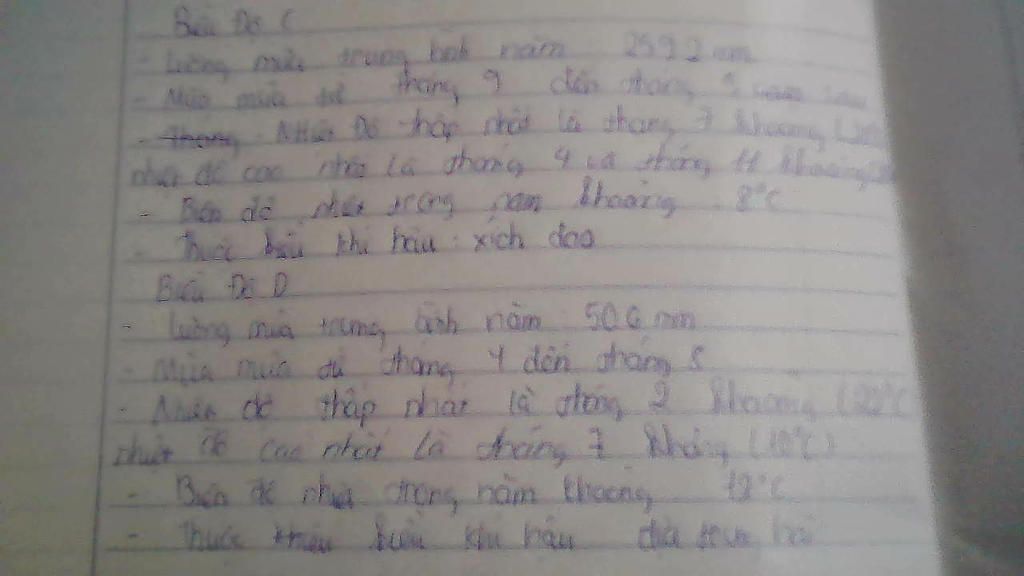 Biểu Đồ C
- Lượng mưa trung bình năm : 2592 mm
- Mùa mưa từ tháng 9 đến tháng 5 năm sau
- Nhiệt Độ thấp nhất là tháng 7 khoảng
nhiệt độ cao nhất là tháng 4 và tháng 11 khoảng
- Biên độ nhiệt trong năm khoảng 8°C
- Thuộc kiểu khí hậu : xích đạo
Biểu Đồ D
- Lượng mưa trung bình năm : 506 mm
- Mùa mưa từ tháng 4 đến tháng 8
- Nhiệt độ thấp nhất là tháng 2 khoảng
nhiệt độ cao nhất là tháng 7 khoảng (10°C)
- Biên độ nhiệt trong năm khoảng 12°C
- Thuộc kiểu khí hậu địa trung hải